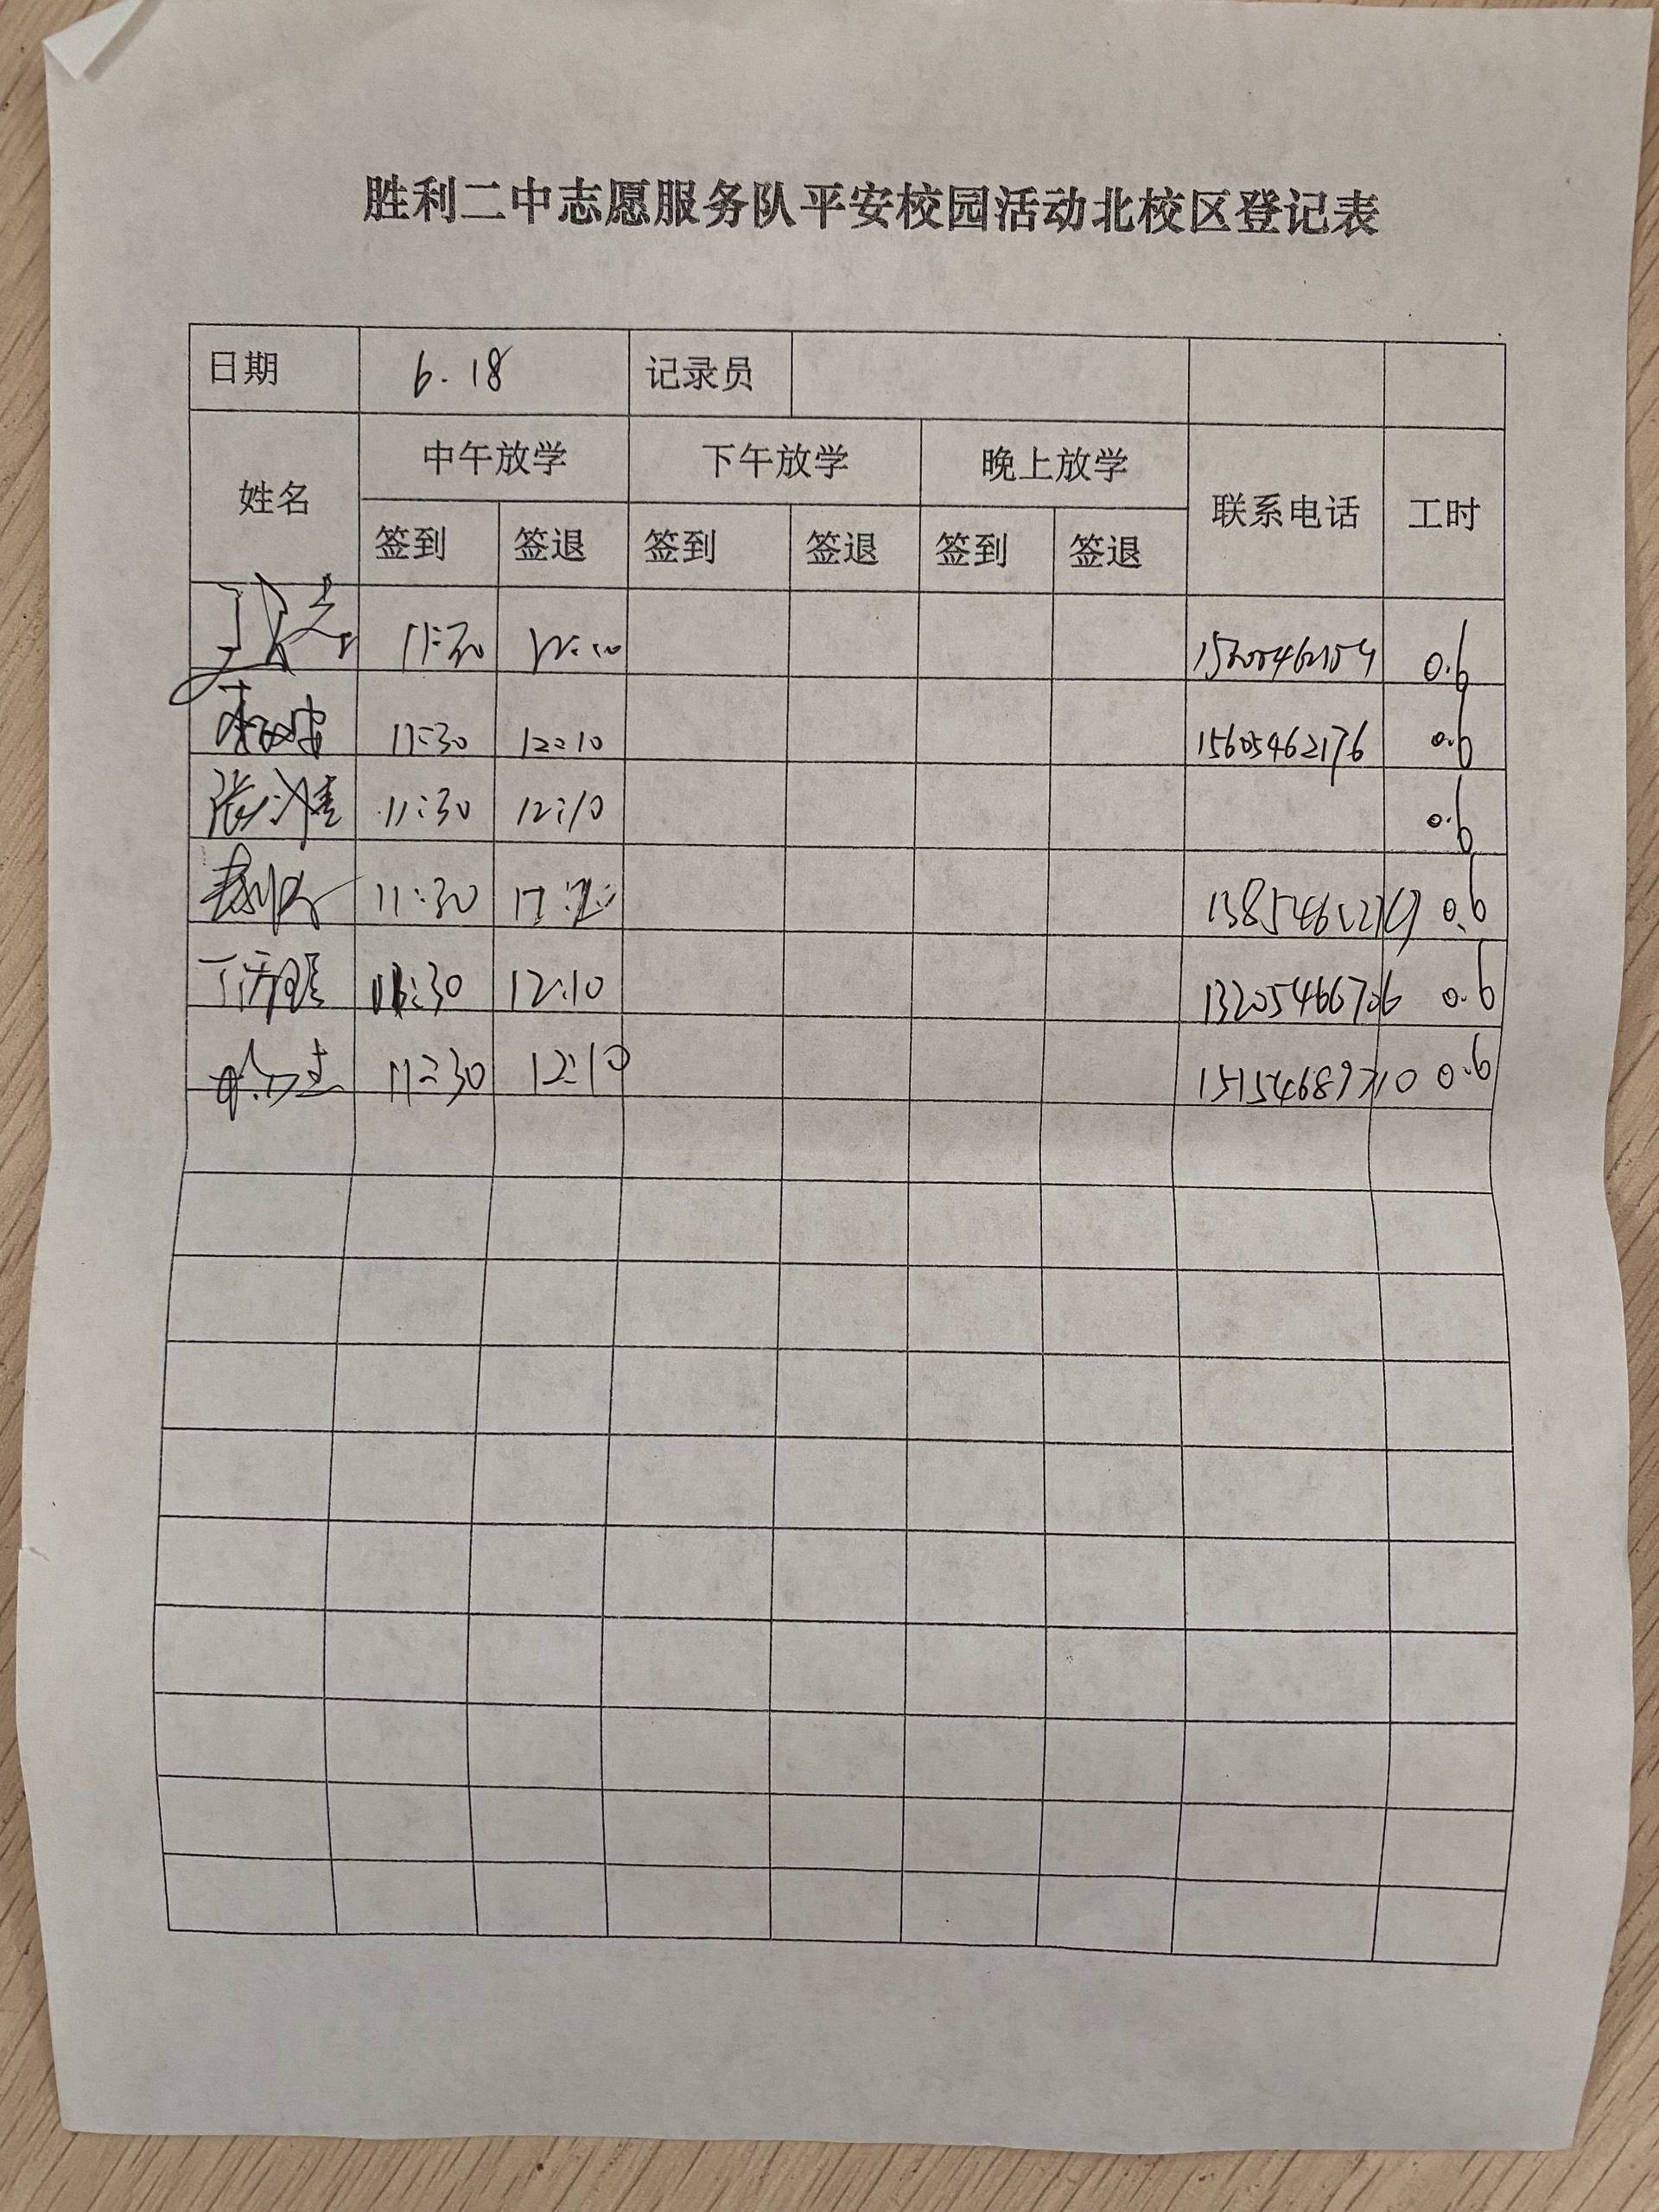 胜利二中志愿服务队平安校园活动北校区登记表
日期 6.18 记录员
姓名 中午放学 下午放学 晚上放学 联系电话 工时
签到 签退 签到 签退 签到 签退
11:30 0.6
11:30 12:10 15605462176 0.6
张 11:30 12:10 0.6
11:30 0.6
丁 11:30 12:10 13205466706 0.6
11:30 12:10 0.6